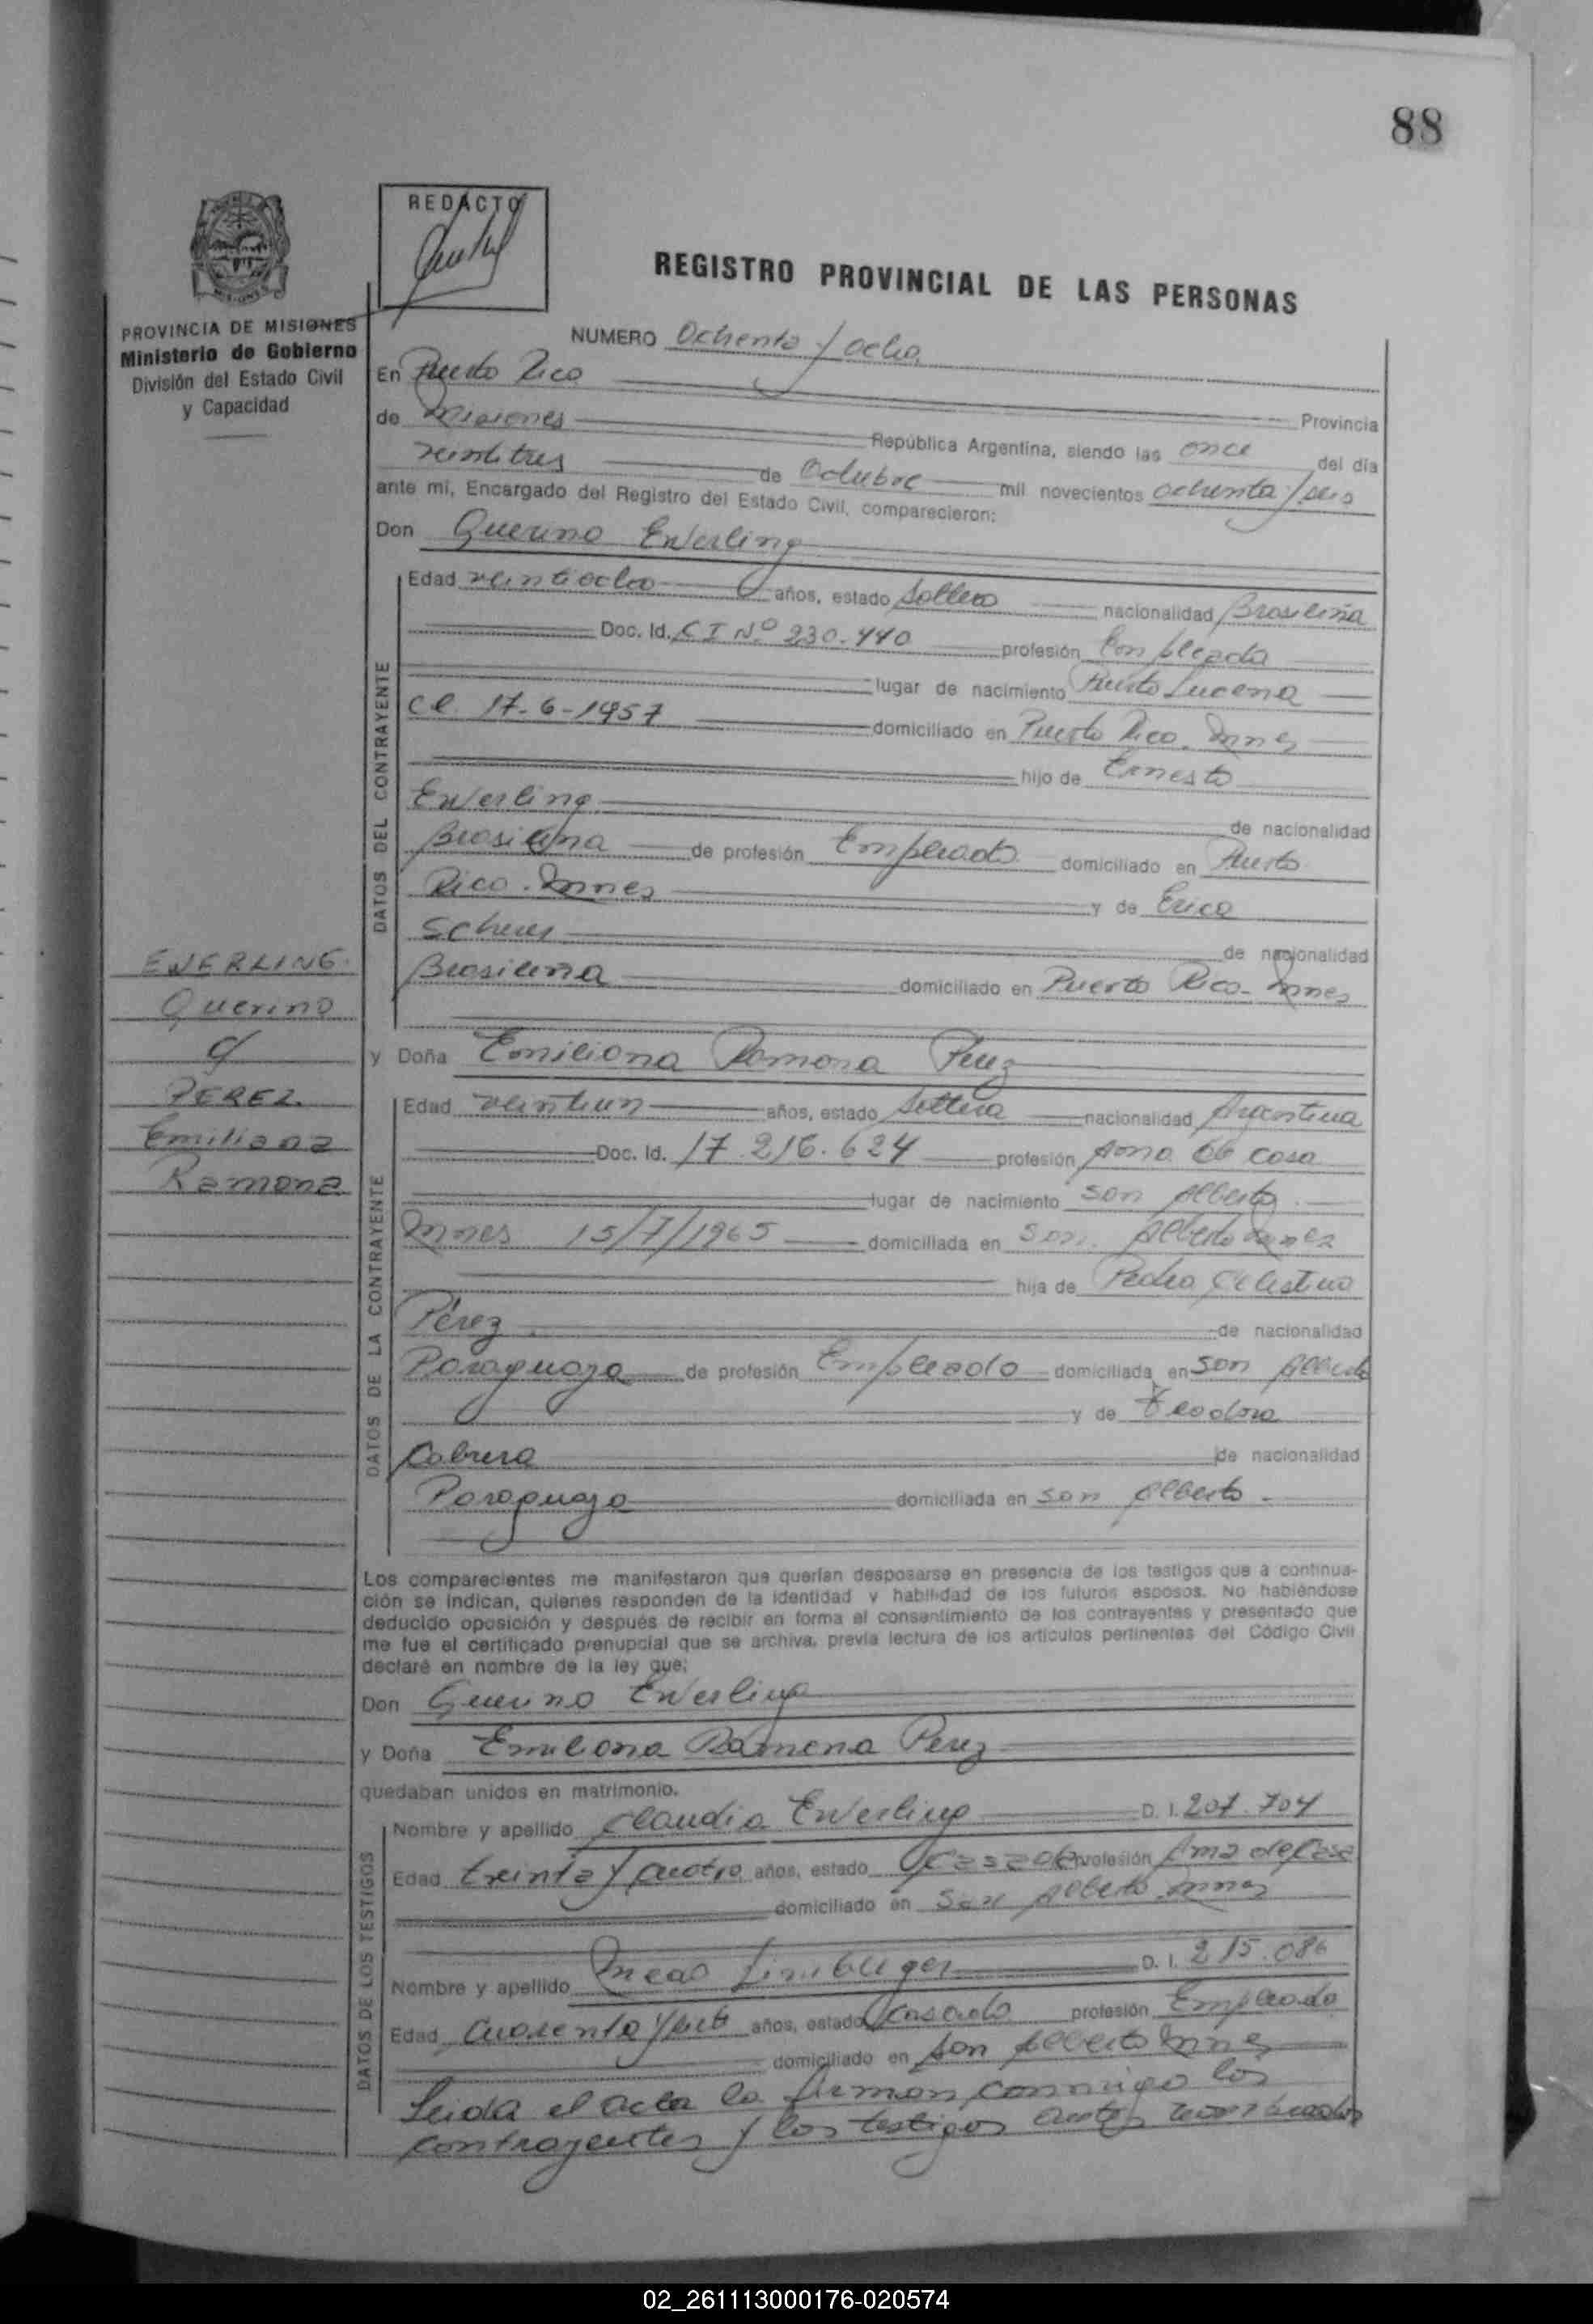 88
REDACTO
REGISTRO PROVINCIAL DE LAS PERSONAS
PROVINCIA DE MISIONES
Ministerio de Gobierno
División del Estado Civil
y Capacidad
NUMERO Ochenta y ocho
En Puerto Rico
de Misiones Provincia
República Argentina, siendo las once del día
veintitres de Octubre mil novecientos ochenta y seis
ante mí, Encargado del Registro del Estado Civil, comparecieron:
Don Querino Ewerling
DATOS DEL CONTRAYENTE
Edad veintiocho años, estado Soltero nacionalidad Brasileña
Doc. Id. C I Nº 230.440 profesión Empleado
lugar de nacimiento Puerto Lucena
el 17-6-1957 domiciliado en Puerto Rico. Mnes
hijo de Ernesto
Ewerling de nacionalidad
Brasileña de profesión Empleado domiciliado en Puerto
Rico. Mnes y de Erica
Scherer de nacionalidad
Brasileña domiciliado en Puerto Rico - Mnes
EWERLING
Querino
c/
PEREZ
Emiliana
Ramona
y Doña Emiliana Ramona Perez
DATOS DE LA CONTRAYENTE
Edad veintiun años, estado Soltera nacionalidad Argentina
Doc. Id. 17.216.624 profesión Ama de casa
lugar de nacimiento San Alberto.
Mnes 15/7/1965 domiciliada en San Alberto Mnes
hija de Pedro Celestino
Pérez de nacionalidad
Paraguaya de profesión Empleado domiciliada en San Alberto
y de Teodora
Cabrera de nacionalidad
Paraguaya domiciliada en San Alberto -
Los comparecientes me manifestaron que querían desposarse en presencia de los testigos que a continua-
ción se indican, quienes responden de la identidad y habilidad de los futuros esposos. No habiéndose
deducido oposición y después de recibir en forma el consentimiento de los contrayentes y presentado que
me fue el certificado prenupcial que se archiva, previa lectura de los artículos pertinentes del Código Civil
declaré en nombre de la ley que:
Don Querino Ewerling
y Doña Emiliana Ramona Perez
quedaban unidos en matrimonio.
DATOS DE LOS TESTIGOS
Nombre y apellido Claudia Ewerling D. I. 207.704
Edad treinta y cuatro años, estado Casada profesión Ama de Casa
domiciliado en San Alberto Mnes
Nombre y apellido D. I. 215.086
Edad Cuarenta y años, estado Casado profesión Empleado
domiciliado en San Alberto Mnes
Leida el acta la firman conmigo los
contrayentes y los testigos antes nombrados
02_261113000176-020574